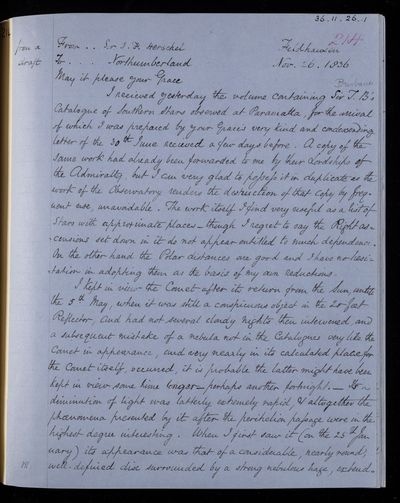 36.11.26.1
214
from a draft
From .. Sir J. F. Herschel
Feldhausen
To . . . Northumberland
Nov. 26. 1836
May it please your Grace
Brisbane
I received yesterday the volume containing Sir T. B's
Catalogue of Southern Stars observed at Paramatta, for the arrival
of which I was prepared by your Grace's very kind and condescending
letter of the 30th June received a few days before. A copy of the
same work had already been forwarded to me by their Lordships of
the Admiralty, but I am very glad to possess it in duplicate as the
work of the Observatory renders the destruction of that copy by freq-
uent use, unavoidable. The work itself I find very useful as a list of
Stars with approximate places – though I regret to say the Right as-
censions set down in it do not appear entitled to much dependence.
On the other hand the Polar distances are good and I have no hesi-
tation in adopting them as the basis of my own reductions.
I kept in view the Comet after its return from the Sun, until
the 5th May, when it was still a conspicuous object in the 20 feet
Reflector, and had not several cloudy nights then intervened, and
a subsequent mistake of a nebula not in the Catalogues very like the
Comet in appearance, and very nearly in its calculated place for
the Comet itself, occurred, it is probable the latter might have been
kept in view some time longer – perhaps another fortnight. – Its
diminution of light was latterly extremely rapid, & altogether the
phænomena presented by it after the perihelion passage were in the
highest degree interesting. When I first saw it (on the 25th Jan-
uary) its appearance was that of a considerable, nearly round,
well-defined disc surrounded by a strong nebulous haze, extend-